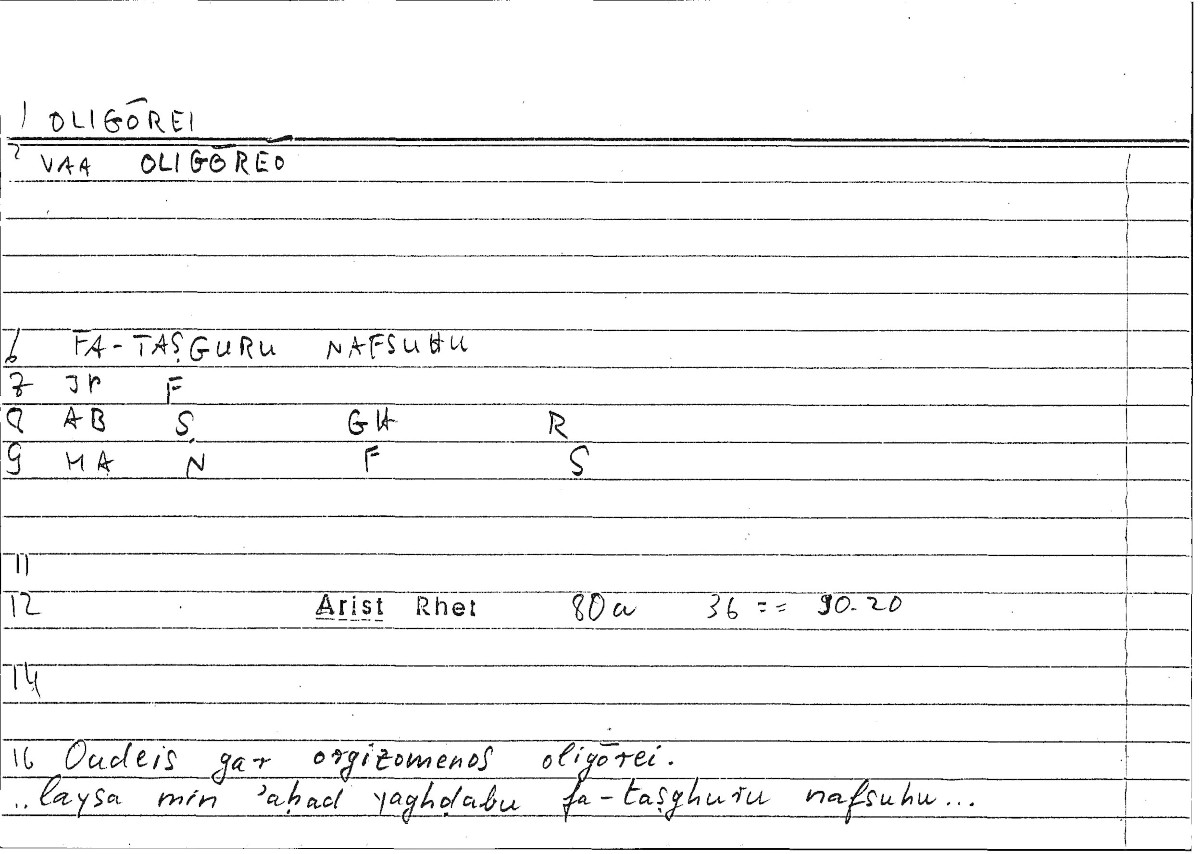 1 OLIGŌREI
2 VAA OLIGŌREŌ
6 FA-TAṢGURU NAFSUHU
7 JP F
8 AB Ṣ GH R
9 MA N F S
11
12 Arist Rhet 80a 36 == 90.20
14
16 Oudeis gar orgizomenos oligōrei.
..laysa min 'aḥad yaghḍabu fa-taṣghuru nafsuhu...